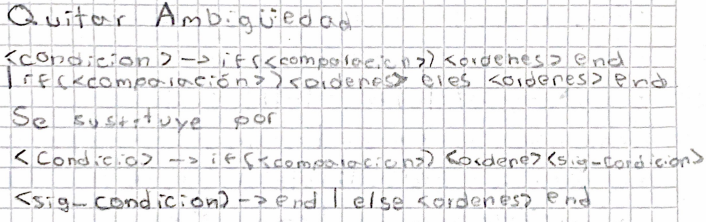 Quitar Ambigüedad
<condicion> -> if(<comparación>) <ordenes> end
| if(<comparación>) <ordenes> eles <ordenes> end
Se sustituye por
<Condicio> -> if(<comparacion>) <ordene> <sig-condicion>
<sig-condicion> -> end | else <ordenes> end